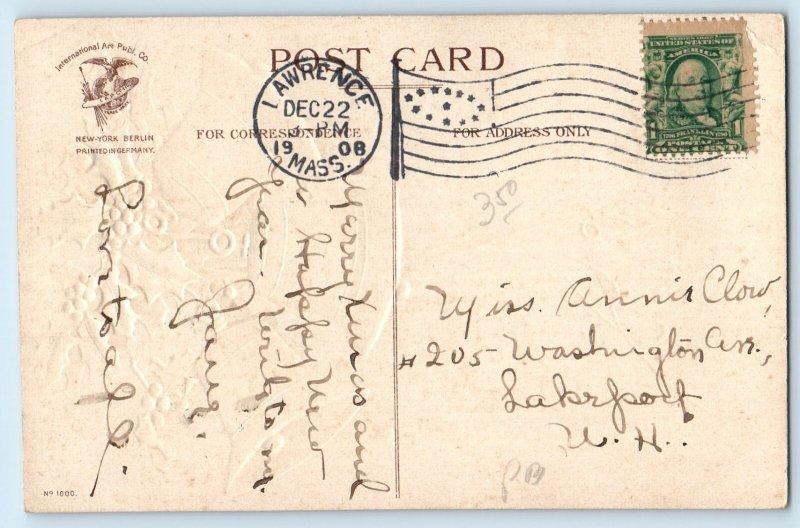 International Art Publ. Co.
NEW-YORK BERLIN
PRINTED IN GERMANY.
POST CARD
FOR CORRESPONDENCE
FOR ADDRESS ONLY
LAWRENCE
DEC 22
PM
1908
MASS.
SERIES 1902
UNITED STATES OF
AMERICA
1706 FRANKLIN 1790
POSTAGE
350
Merry Xmas and
a Happy New
Year. Write to me.
Jane.
Love to all.
Miss. Annie Clow,
#205 Washington Ave.,
Lakeport
N. H.
Nº 1600.